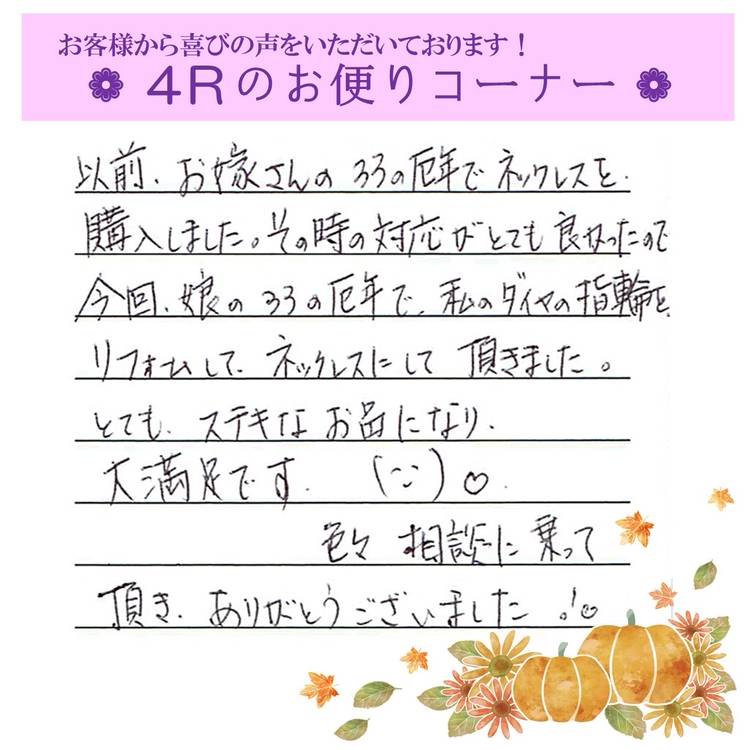 お客様から喜びの声をいただいております！
4Rのお便りコーナー
以前、お嫁さんの33の厄年でネックレスを、
購入しました。その時の対応がとても良かったので
今回、娘の33の厄年で、私のダイヤの指輪を、
リフォームして、ネックレスにして頂きました。
とても、ステキなお品になり、
大満足です。
色々相談に乗って
頂き、ありがとうございました。!